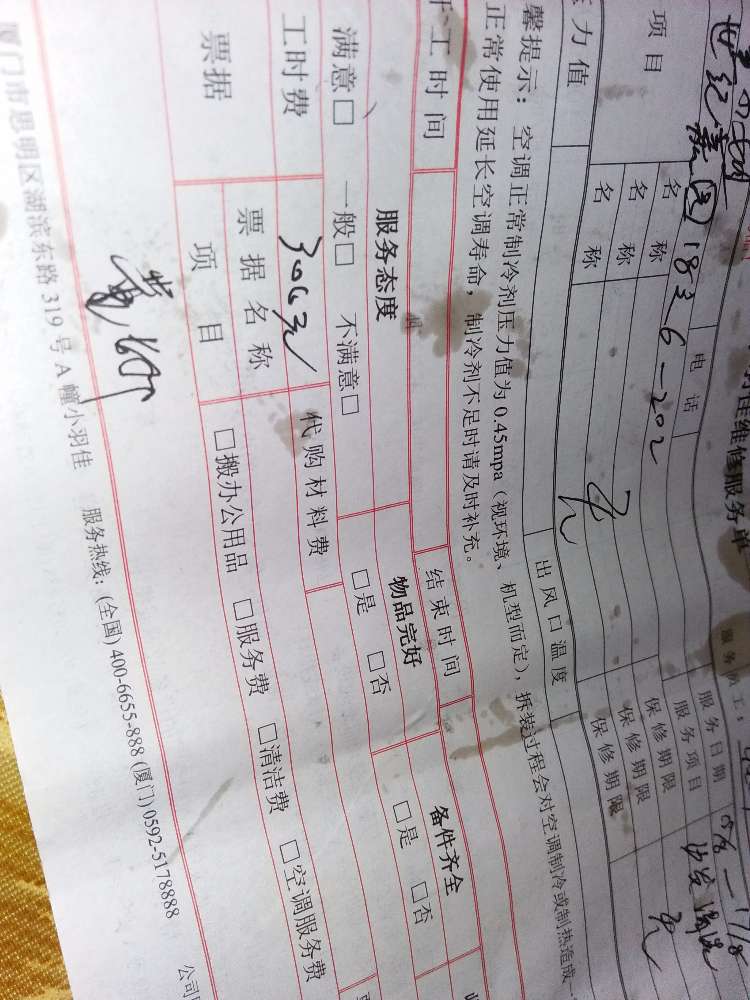 羽佳维修服务单
服务员工:
电话 服务日期
世纪嘉园1826-202 服务项目 沙发清洗
项目 名称 保修期限
名称 无 保修期限 无
名称 保修期限
压力值 出风口温度
馨提示: 空调正常制冷剂压力值为0.45mpa(视环境、机型而定), 拆装过程会对空调制冷或制热造成
正常使用延长空调寿命, 制冷剂不足时请及时补充。
工时间 结束时间
服务态度 物品完好 备件齐全
满意□ 一般□ 不满意□ □是 □否 □是 □否
工时费 306元 代购材料费
票据 票据名称 □搬办公用品 □服务费 □清洁费 □空调服务费
项目
厦门市思明区湖滨东路319号A幢小羽佳 服务热线: (全国)400-6655-888 (厦门)0592-5178888 公司